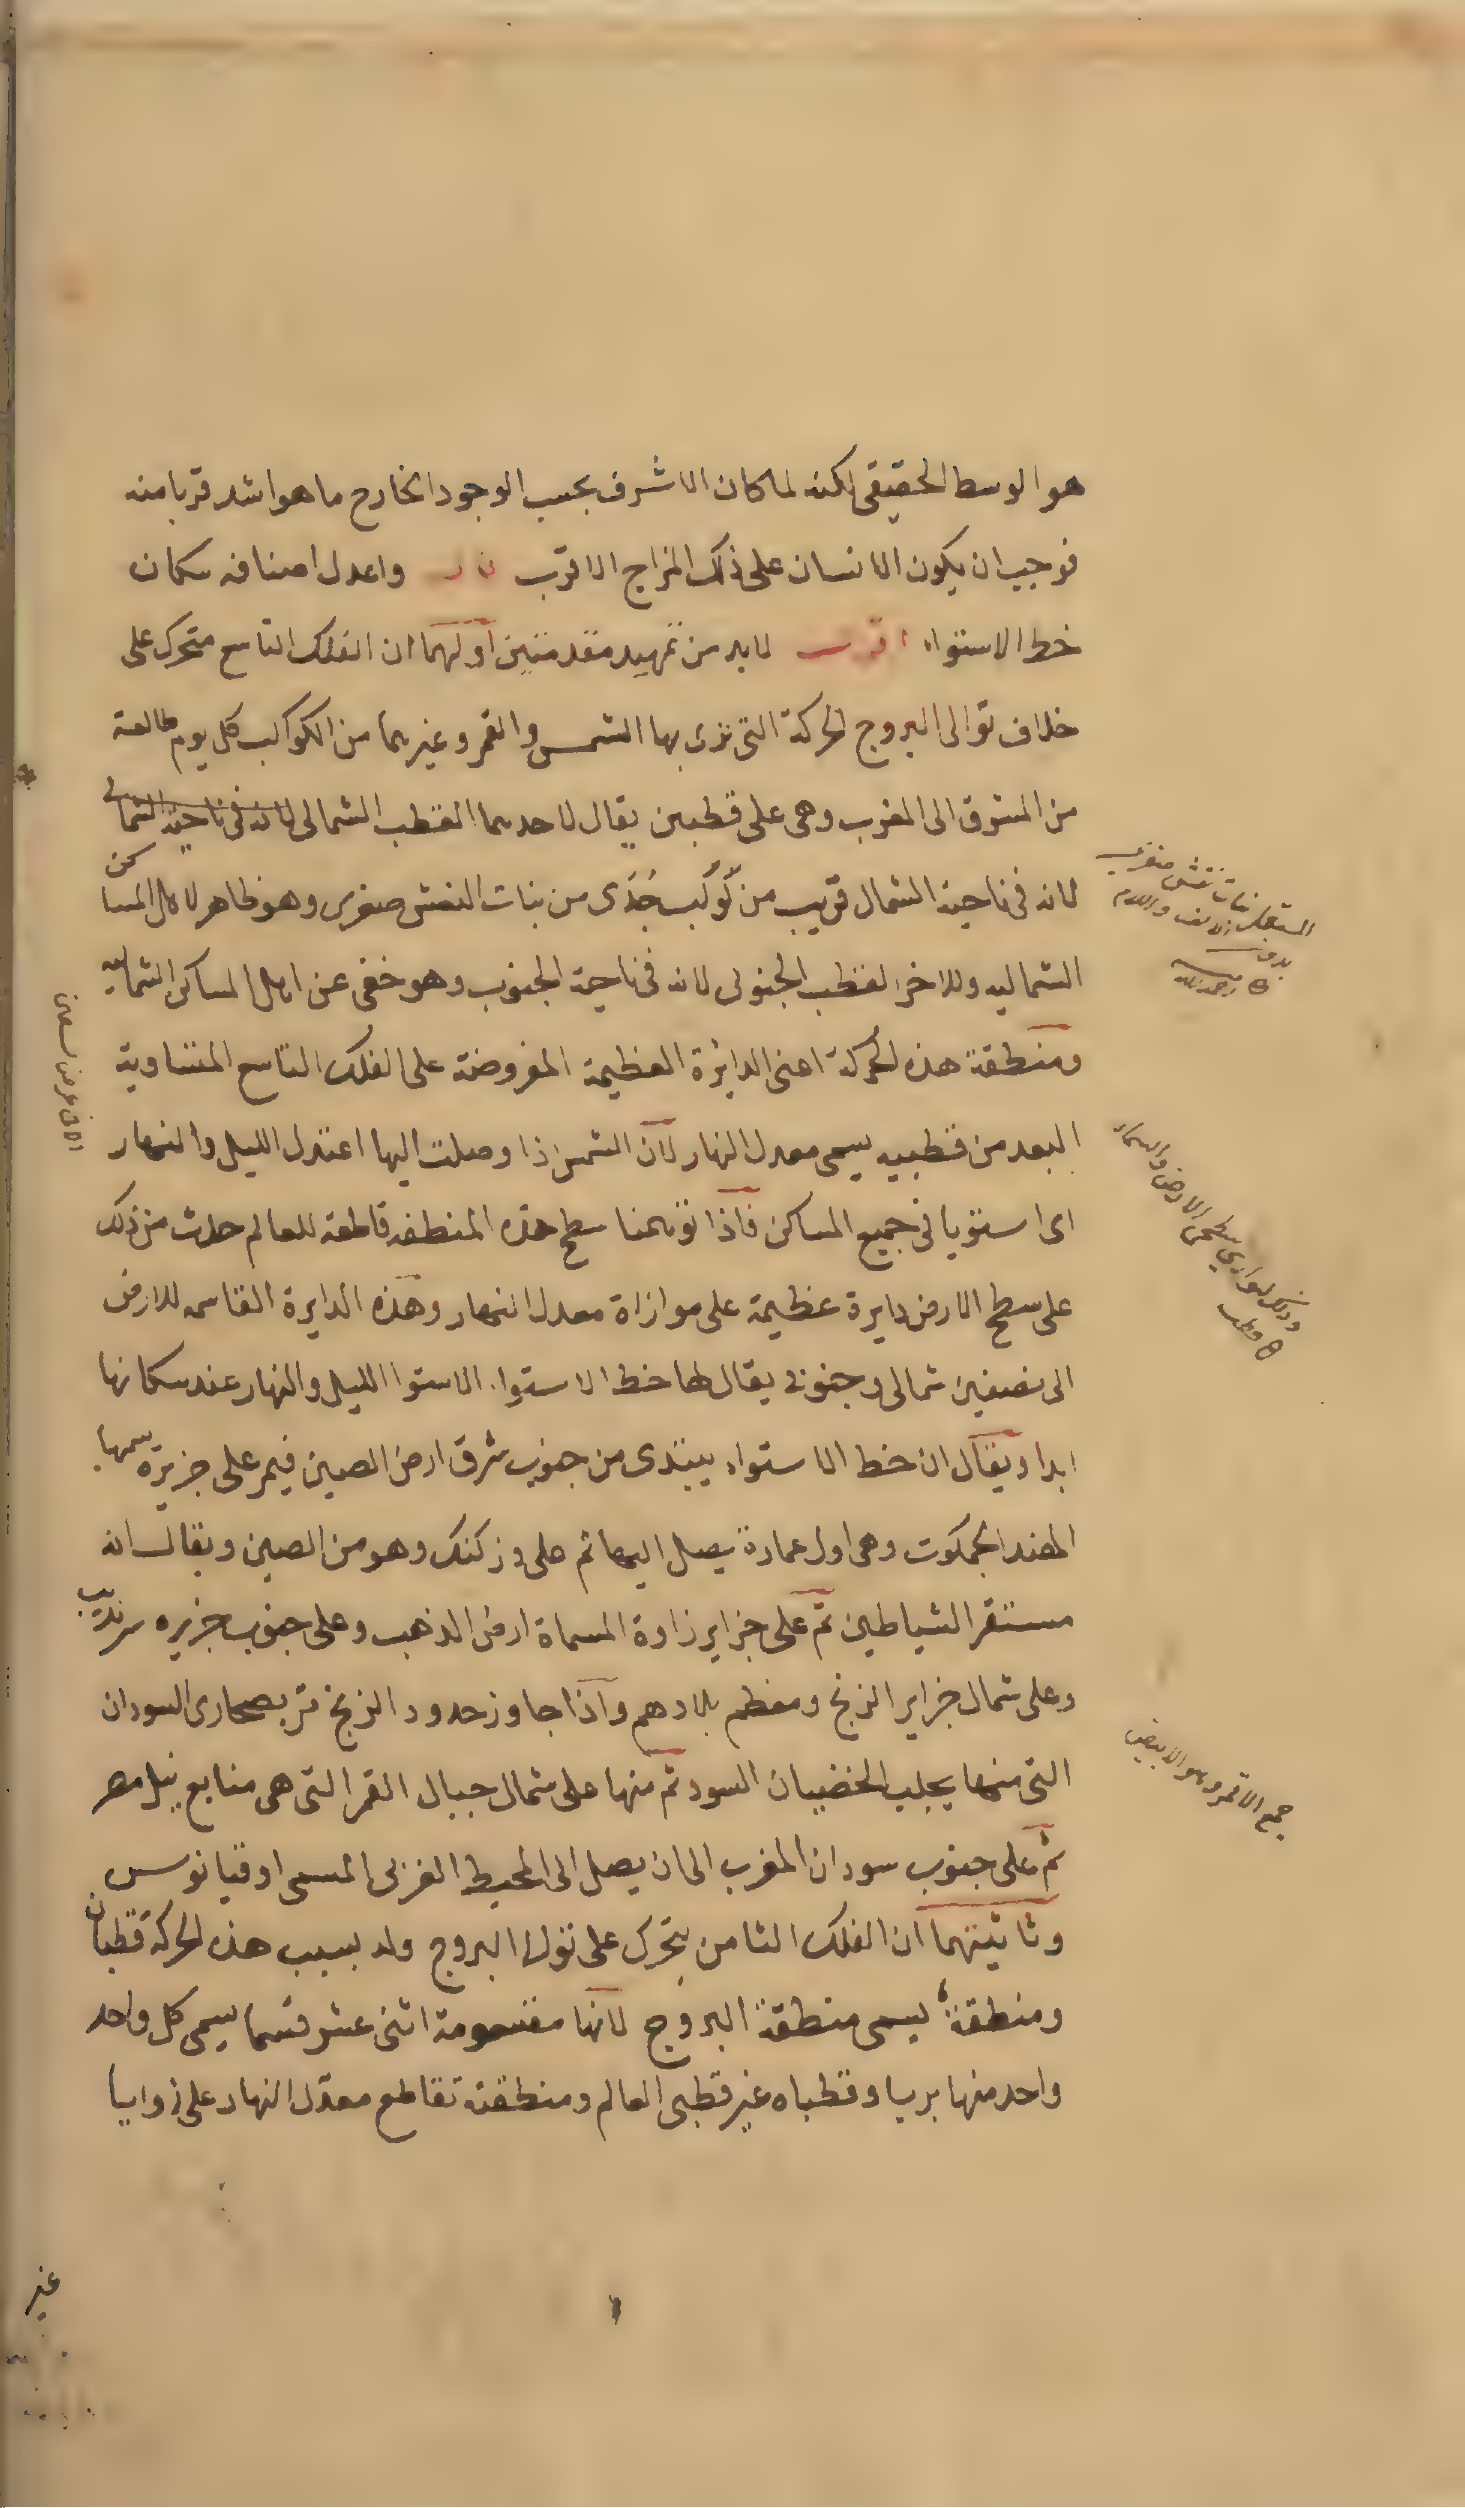 هو الوسط الحقيقى لكنه لما كان الاشرف بحسب الوجود الخارج ما هو اشد قربا منه
فوجب ان يكون الانسان على ذلك المزاج الاقرب قال واعدل اصنافه سكان
خط الاستواء اقول لابد من تمهيد مقدمتين اولهما ان الفلك التاسع متحرك على
خلاف توالى البروج الحركة التى نرى بها الشمس والقمر وغيرهما من الكواكب كل يوم طالعة
من المشرق الى المغرب وهى على قطبين يقال لاحدهما القطب الشمالى لانه فى ناحية الشمالى
لانه فى ناحية الشمال قريب من كوكب جُدَى من بنات النعش صغرى وهو ظاهر لاهل المساكن
الشماليه وللاخر القطب الجنوبى لانه فى ناحية الجنوب وهو خفى عن اهل المساكن الشماليه
ومنطقة هذه الحركة اعنى الدائرة العظيمة المفروضة على الفلك التاسع المتساوية
البعد من قطبيه يسمى معدل النهار لان الشمس اذا وصلت اليها اعتدل الليل والنهار
اى استويا فى جميع المساكن فاذا توهمنا سطح هذه المنطقه قاطعة للعالم حدث من ذلك
على سطح الارض دايرة عظيمة على موازاة معدل النهار وهذه الدايرة القاسمه للارض
الى نصفين شمالى وجنوبى يقال لها خط الاستواء الاستوا الليل والنهار عند سكانها
ابدا ويقال ان خط الاستواء يبتدى من جنوب شرق ارض الصين فيمر على جزيرة يسميها
الهند الجمكوت وهى اول عمارة يصل اليها ثم على وز كنك وهو من الصين ويقال انه
مستقر الشياطين ثم على جزاير زاوة المسماة ارض الذهب وعلى جنوب جزيره سرنديب
وعلى شمال جزاير الزنج ومعظم بلادهم واذا جاوز حدود الزنج تمر بصحارى السودان
التى منها يجلب الخضيان السود ثم منها على شمال جبال القمر التى هى منابع نيل مصر
ثم على جنوب سودان المغرب الى ان يصل الى المحيط الغربى المسمى اوقيانوس
وثانيتهما ان الفلك الثامن يتحرك على توالى البروج وله بسبب هذه الحركة قطبان
ومنطقة يسمى منطقة البروج لانها مقسومة اثنى عشر قسما يسمى كل واحد
واحد منها برجا وقطباه غير قطبى العالم ومنطقته تقاطع معدل النهار على زوايا
غير
بنات نعش صغرى
الا فى عرض تسعين
جمع الاقمر وهو الابيض